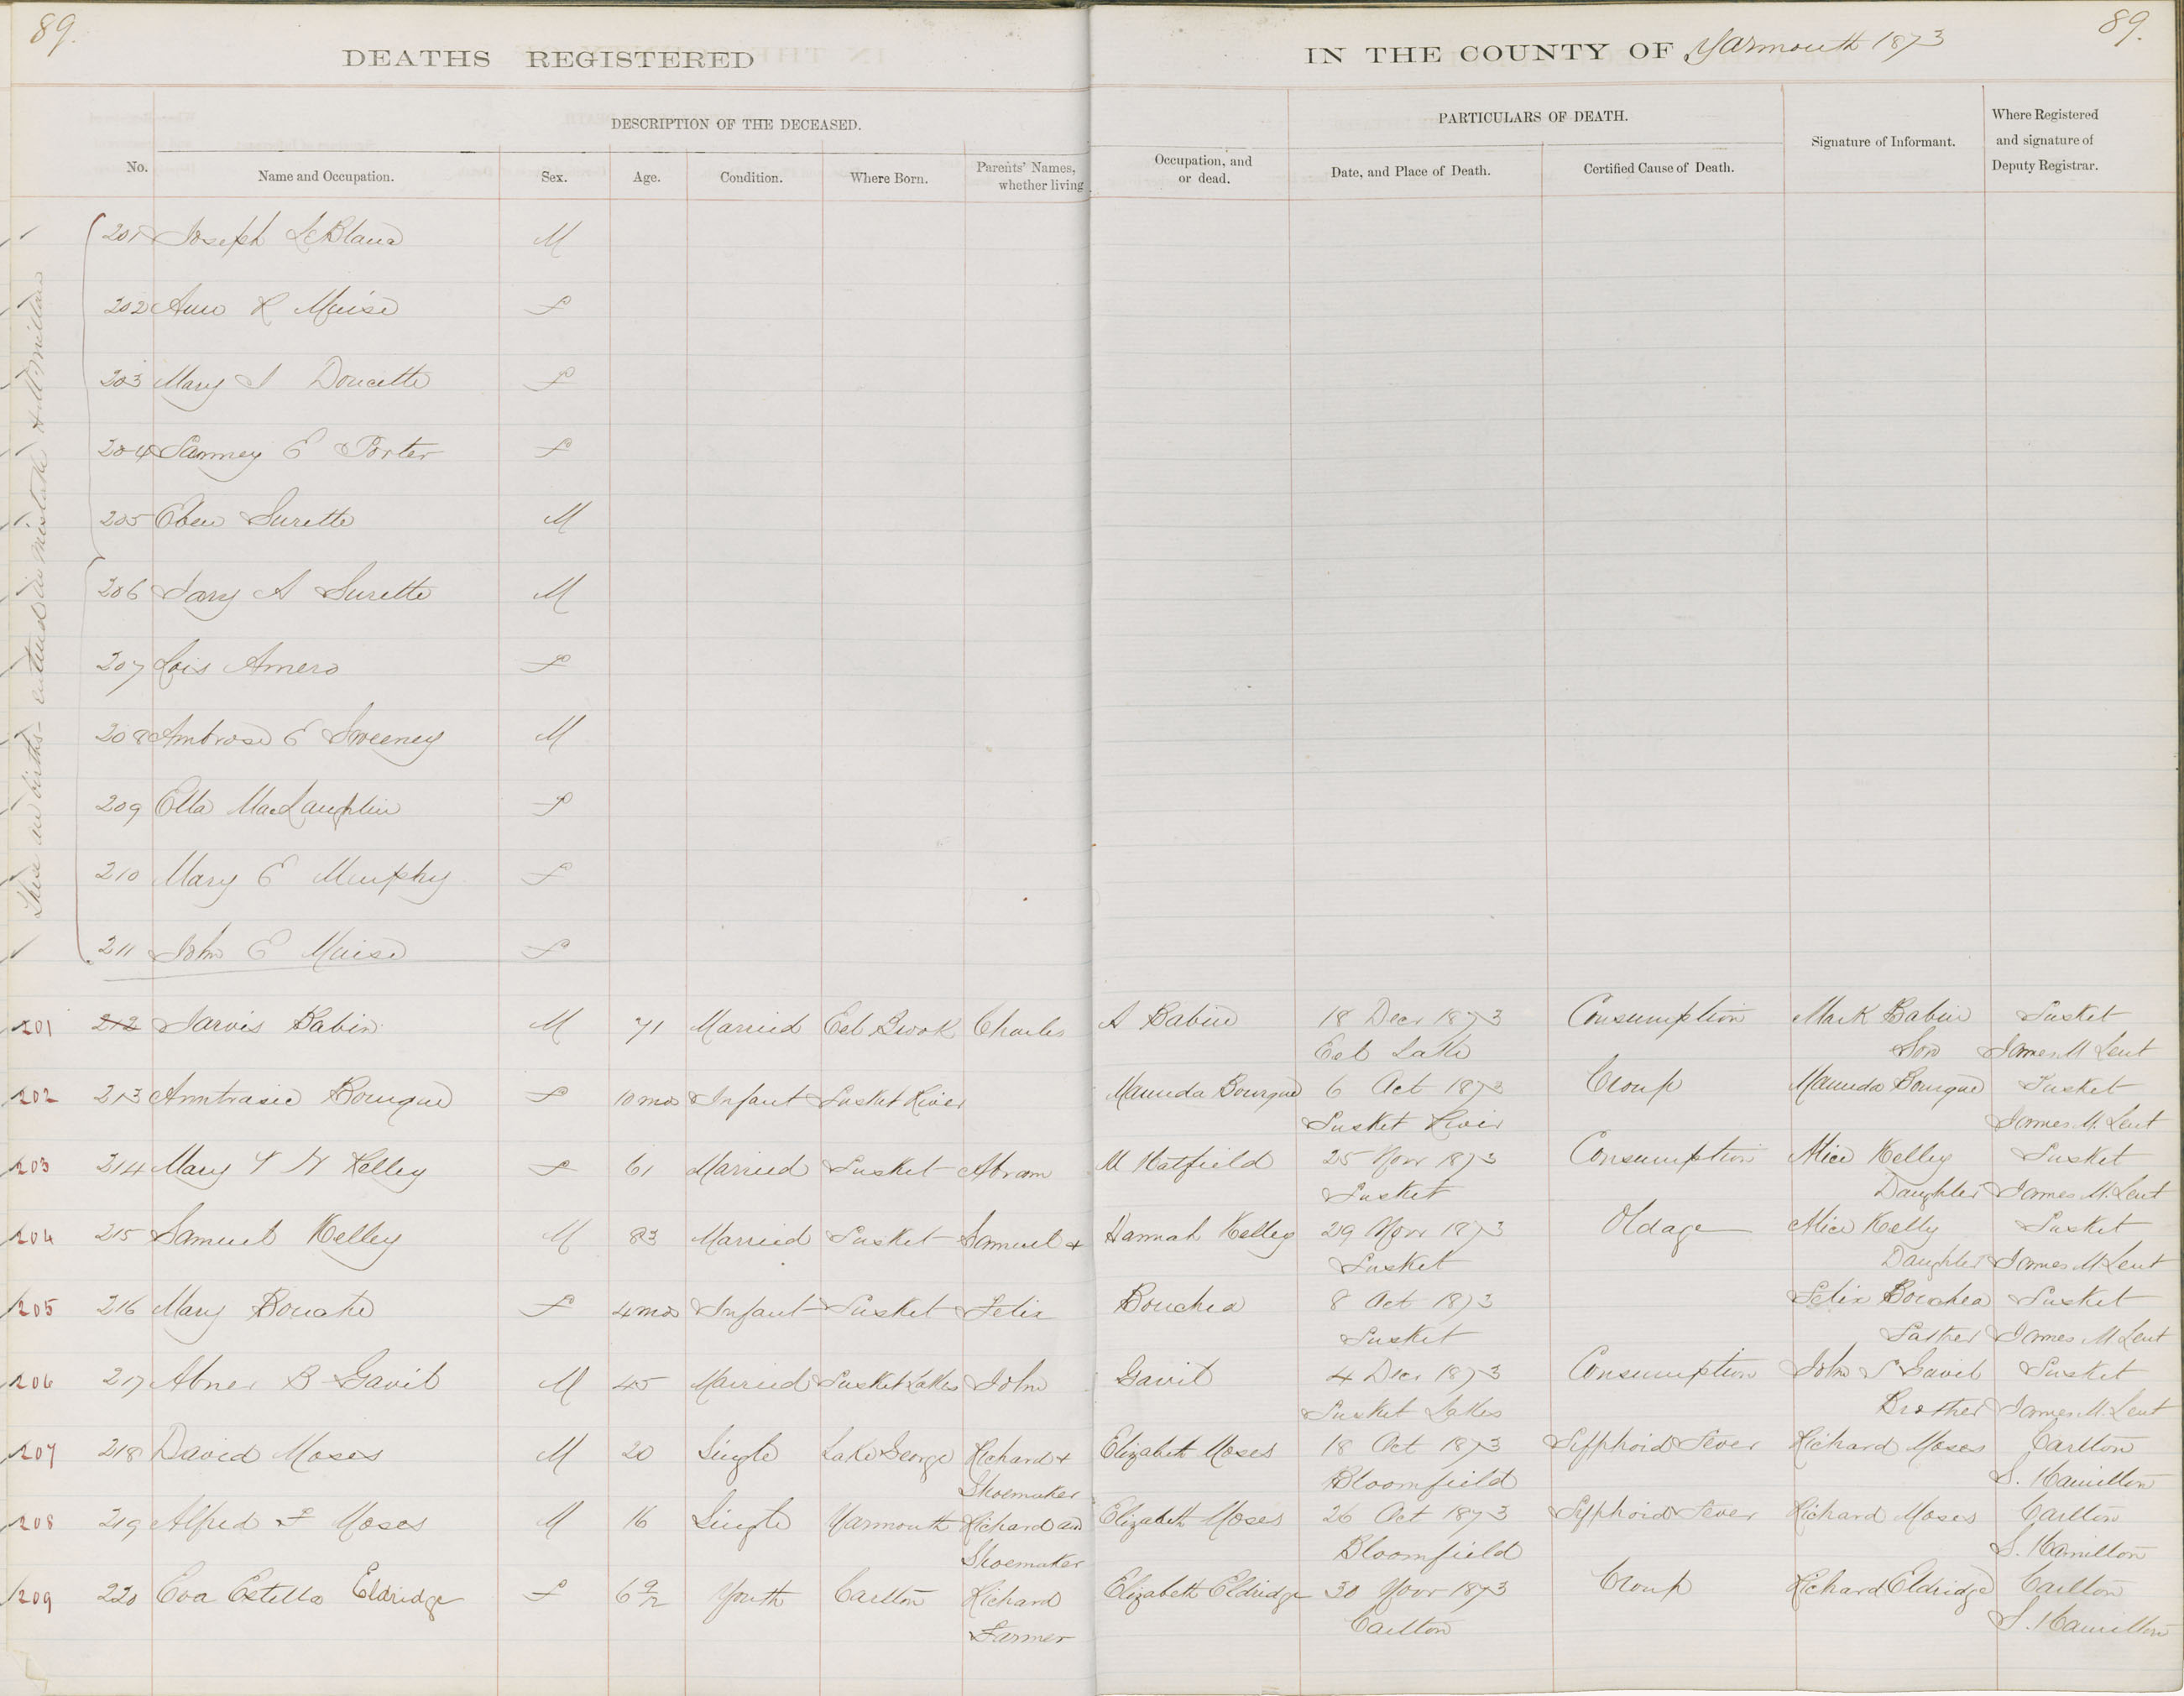 89.
DEATHS REGISTERED
IN THE COUNTY OF Yarmouth 1873
89.
DESCRIPTION OF THE DECEASED.
PARTICULARS OF DEATH.
No.
Name and Occupation.
Sex.
Age.
Condition.
Where Born.
Parents' Names, whether living
Occupation, and or dead.
Date, and Place of Death.
Certified Cause of Death.
Signature of Informant.
Where Registered and signature of Deputy Registrar.
These are births entered in mistake
201 Joseph LeBlanc M
202 Ann R Muise f
203 Mary J Doucette f
204 Fanney E Porter f
205 Eben Surette M
206 Jary A Surette M
207 Lois Amero f
208 Ambrose E Sweeney M
209 Etta MacLaughlin f
210 Mary E Murphy f
211 John E Muise f
201 212 Jarvis Babin M 71 Married Eel Brook Charles A Babin 18 Decr 1873 Consumption Mark Babin Tusket
Eel Lake Son James M Lent
202 213 Anntrasie Bourque f 10 mos Infant Tusket River Maunda Bourque 6 Oct 1873 Croup Maunda Bourque Tusket
Tusket River James M. Lent
203 214 Mary T H Kelley f 61 Married Tusket Abram M Hatfield 25 Novr 1873 Consumption Alice Kelley Tusket
Tusket Daughter James M. Lent
204 215 Samuel Kelley M 83 Married Tusket Samuel + Hannah Kelley 29 Novr 1873 Old age Alice Kelly Tusket
Tusket Daughter James M Lent
205 216 Mary Bouche f 4 mos Infant Tusket Felix Bouchea 8 Oct 1873 Felix Bouchea Tusket
Tusket Father James M Lent
206 217 Abner B Gavil M 45 Married Tusket Lakes John Gavil 4 Decr 1873 Consumption John S Gavel Tusket
Tusket Lakes Brother James M. Lent
207 218 David Moses M 20 Single Lake George Richard + Elizabeth Moses 18 Oct 1873 Typhoid Fever Richard Moses Carlton
Shoemaker Bloomfield S. Hamilton
208 219 Alfred F Moses M 16 Single Yarmouth Richard and Elizabeth Moses 26 Oct 1873 Typhoid Fever Richard Moses Carlton
Shoemaker Bloomfield S. Hamilton
209 220 Eva Estella Eldridge f 6 9/12 Youth Carlton Richard Elizabeth Eldridge 30 Novr 1873 Croup Richard Eldridge Carlton
Farmer Carlton S. Hamilton